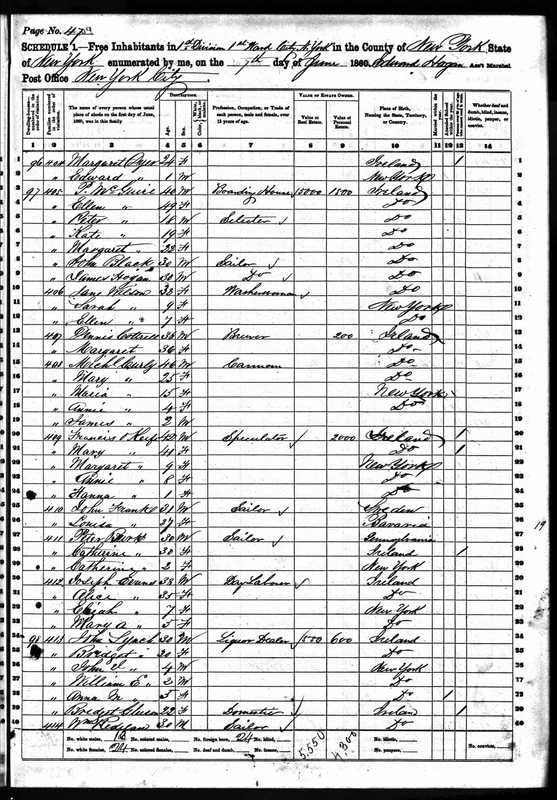 Page No. 47
SCHEDULE 1.—Free Inhabitants in 1st Division 1st Ward City N. York in the County of New York State
of New York enumerated by me, on the 7th day of June 1860. Edward Hogan Ass't Marshal.
Post Office New York City
DESCRIPTION.
VALUE OF ESTATE OWNED.
The name of every person whose usual place of abode on the first day of June, 1860, was in this family.
Age.
Sex.
Profession, Occupation, or Trade of each person, male and female, over 15 years of age.
Value of Real Estate.
Value of Personal Estate.
Place of Birth, Naming the State, Territory, or Country.
Whether deaf and dumb, blind, insane, idiotic, pauper, or convict.
1 2 3 4 5 6 7 8 9 10 11 12 13 14
1 96 404 Margaret 24 F Ireland 1
2 " Edward " 1 M New York
3 97 405 P. McGuire 40 M Boarding House 5000 1500 Ireland
4 " Ellen " 49 F Do
5 " Peter " 18 M Do
6 " Kate " 19 F Do
7 " Margaret 22 F Do
8 " John Black 30 M Sailor Do
9 " James Hogan 30 M Do Do
10 406 Jane Wilson 32 F Washerwoman Do
11 " Sarah " 9 F New York
12 " Ellen " 7 F Do
13 407 Dennis 35 M 200 Ireland
14 " Margaret 36 F Do
15 408 Michl Curly 46 M Carman Do
16 " Mary " 25 F Do
17 " Maria " 15 F New York
18 " Annie " 4 F Do
19 " James " 2 M
20 409 Francis O Keif 42 M Speculator 2000 Ireland 1
21 " Mary " 41 F Do 1
22 " Margaret " 9 F New York
23 " Annie " 8 F Do
24 " Hanna " 1 F Do
25 410 John Frank 31 M Sailor Sweden
26 " Louisa " 37 F Bavaria
27 411 Peter 30 M Sailor Pennsylvania
28 " Catherine " 30 F Ireland 1
29 " Catherine " 2 F New York
30 412 Joseph Evans 38 M Day Laborer Ireland
31 " Alice " 35 F Do
32 " Elijah " 7 New York
33 " Mary A " 5 F Do
34 98 413 John Lynch 30 M Liquor Dealer 600 Ireland
35 " Bridget " 30 F Do
36 " John " 4 M New York
37 " William E " 2 M Do
38 " Anna M 5 F Do 1
39 " Bridget 22 F Domestic Ireland 1
40 414 Wm 30 M Sailor Do
No. white males, No. colored males, No. foreign born, 24 No. blind, 5,550 4300 No. idiotic, No. convicts,
No. white females, 24 No. colored females, No. deaf and dumb, No. insane, No. paupers,
19